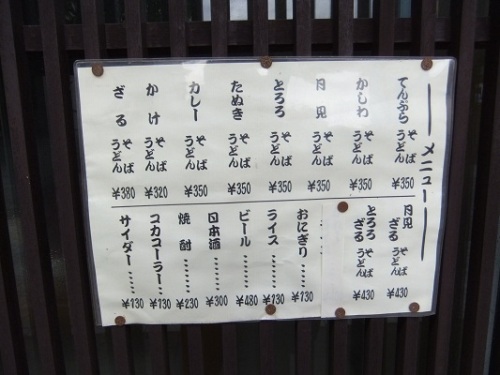 メニュー
てんぷら そば うどん ¥350
かしわ そば うどん ¥350
月見 そば うどん ¥350
とろろ そば うどん ¥350
たぬき そば うどん ¥350
カレー そば うどん ¥350
かけ そば うどん ¥320
ざる そば うどん ¥380
月見ざる そば うどん ¥430
とろろざる そば うどん ¥430
おにぎり……… ¥130
ライス……… ¥130
ビール……… ¥480
日本酒……… ¥300
焼酎……… ¥230
コカコーラ…… ¥130
サイダー…… ¥130